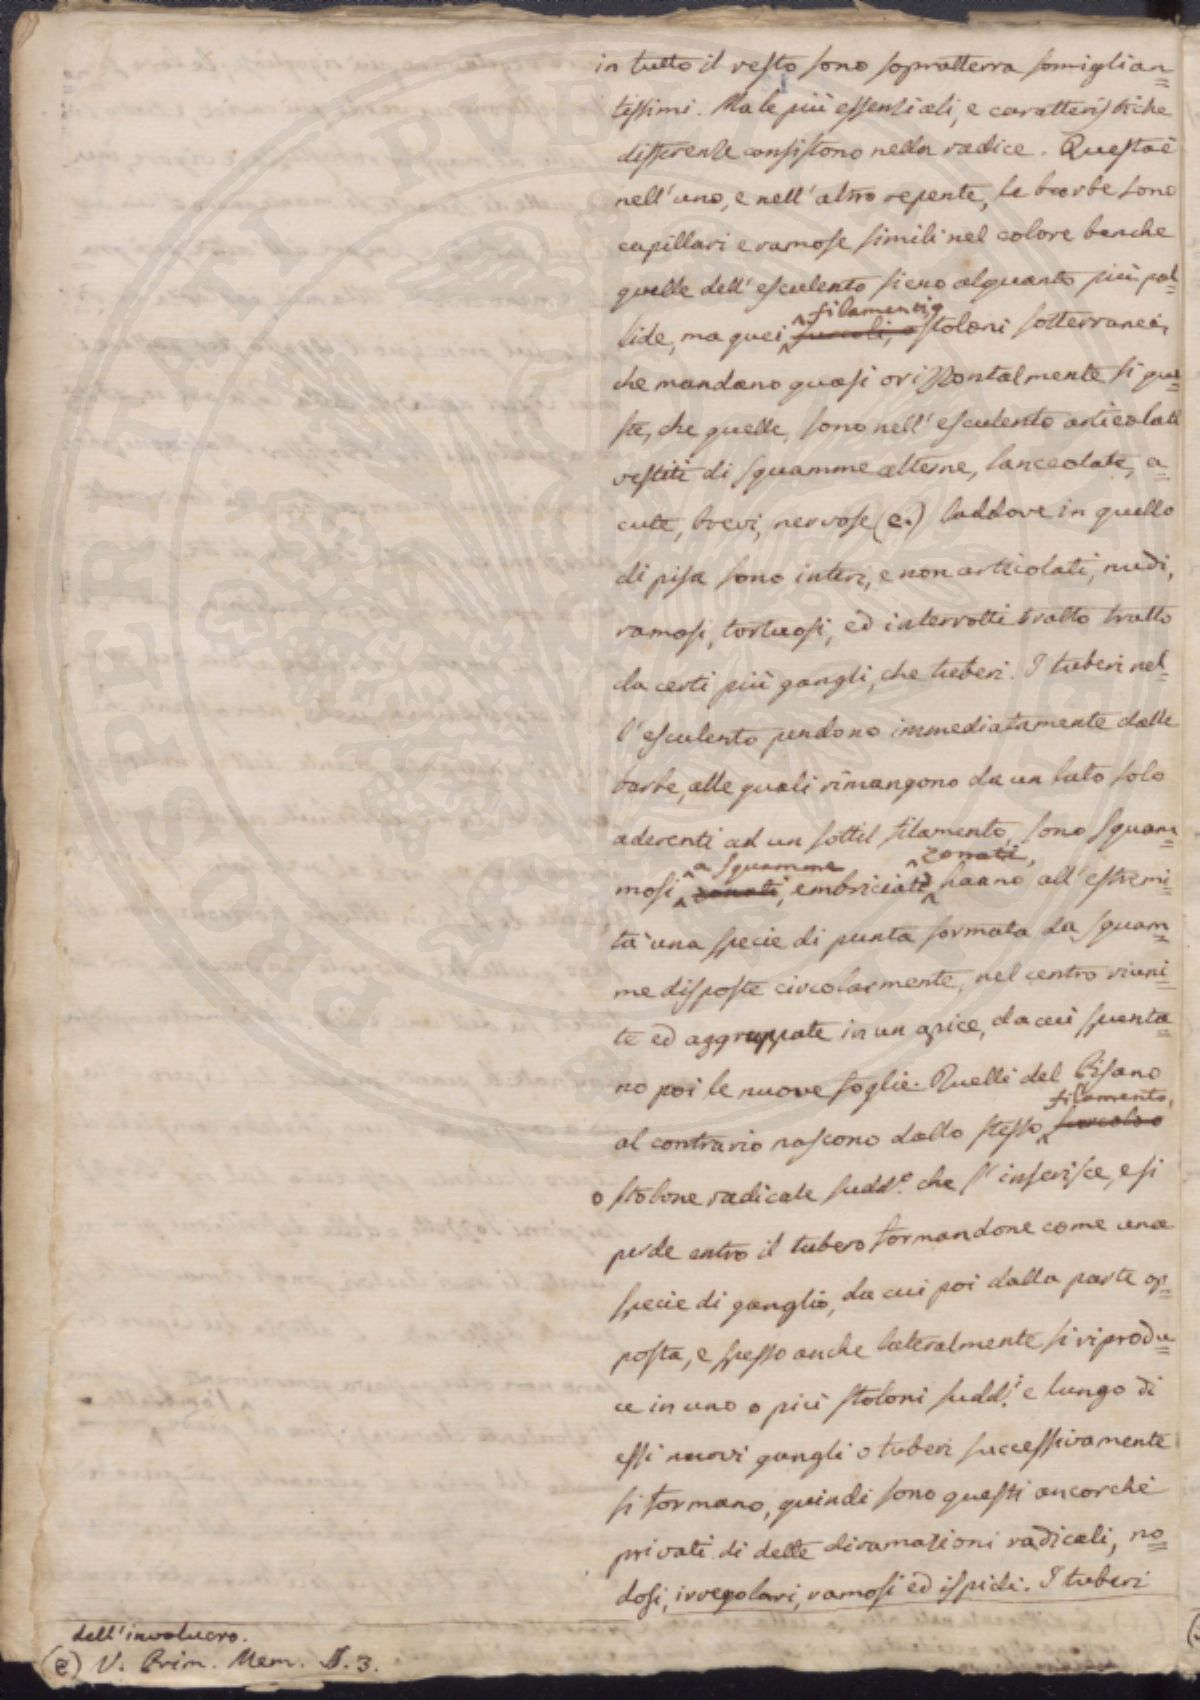 in tutto il resto sono sopratterra somiglian=
tissimi. Ma le più essenziali, e caratteristiche
differenze consistono nella radice. Questa è
nell'uno, e nell'altro repente, le barbe sono
capillari e ramose simili nel colore benche
quelle dell'esculento sieno alquanto più pal=
filamenti o
lide, ma quei surcoli, o stoloni sotterranei,
che mandano quasi orizzontalmente sì que=
ste, che quelle, sono nell'esculento articolati
vestiti di squamme alterne, lanceolate, a=
cute, brevi, nervose (e.) laddove in quello
di pisa sono interi, e non articolati, nudi,
ramosi, tortuosi, ed interrotti tratto tratto
da certi più gangli, che tuberi. I tuberi nel=
l'esculento pendono immediatamente dalle
barbe, alle quali rimangono da un lato solo
aderenti ad un sottil filamento, sono squam=
a squamme zonati,
mosi, zonati, embriciati hanno all'estremi=
tà una specie di punta formata da squam=
me disposte circolarmente, nel centro riuni=
te ed aggruppate in un apice, da cui spunta=
no poi le nuove foglie. Quelli del Pisano
filamento,
al contrario nascono dallo stesso surcolo o
o stolone radicale sudd.o che s'inserisce, e si
perde entro il tubero formandone come una
specie di ganglio, da cui poi dalla parte op=
posta, e spesso anche lateralmente si riprodu=
ce in uno o più stoloni sudd.i e lungo di
essi nuovi gangli o tuberi successivamente
si formano, quindi sono questi ancorchè
privati di dette diramazioni radicali, no=
dosi, irregolari, ramosi ed ispidi. I tuberi
dell'involucro.
(e) V. Prim. Mem. §.3.